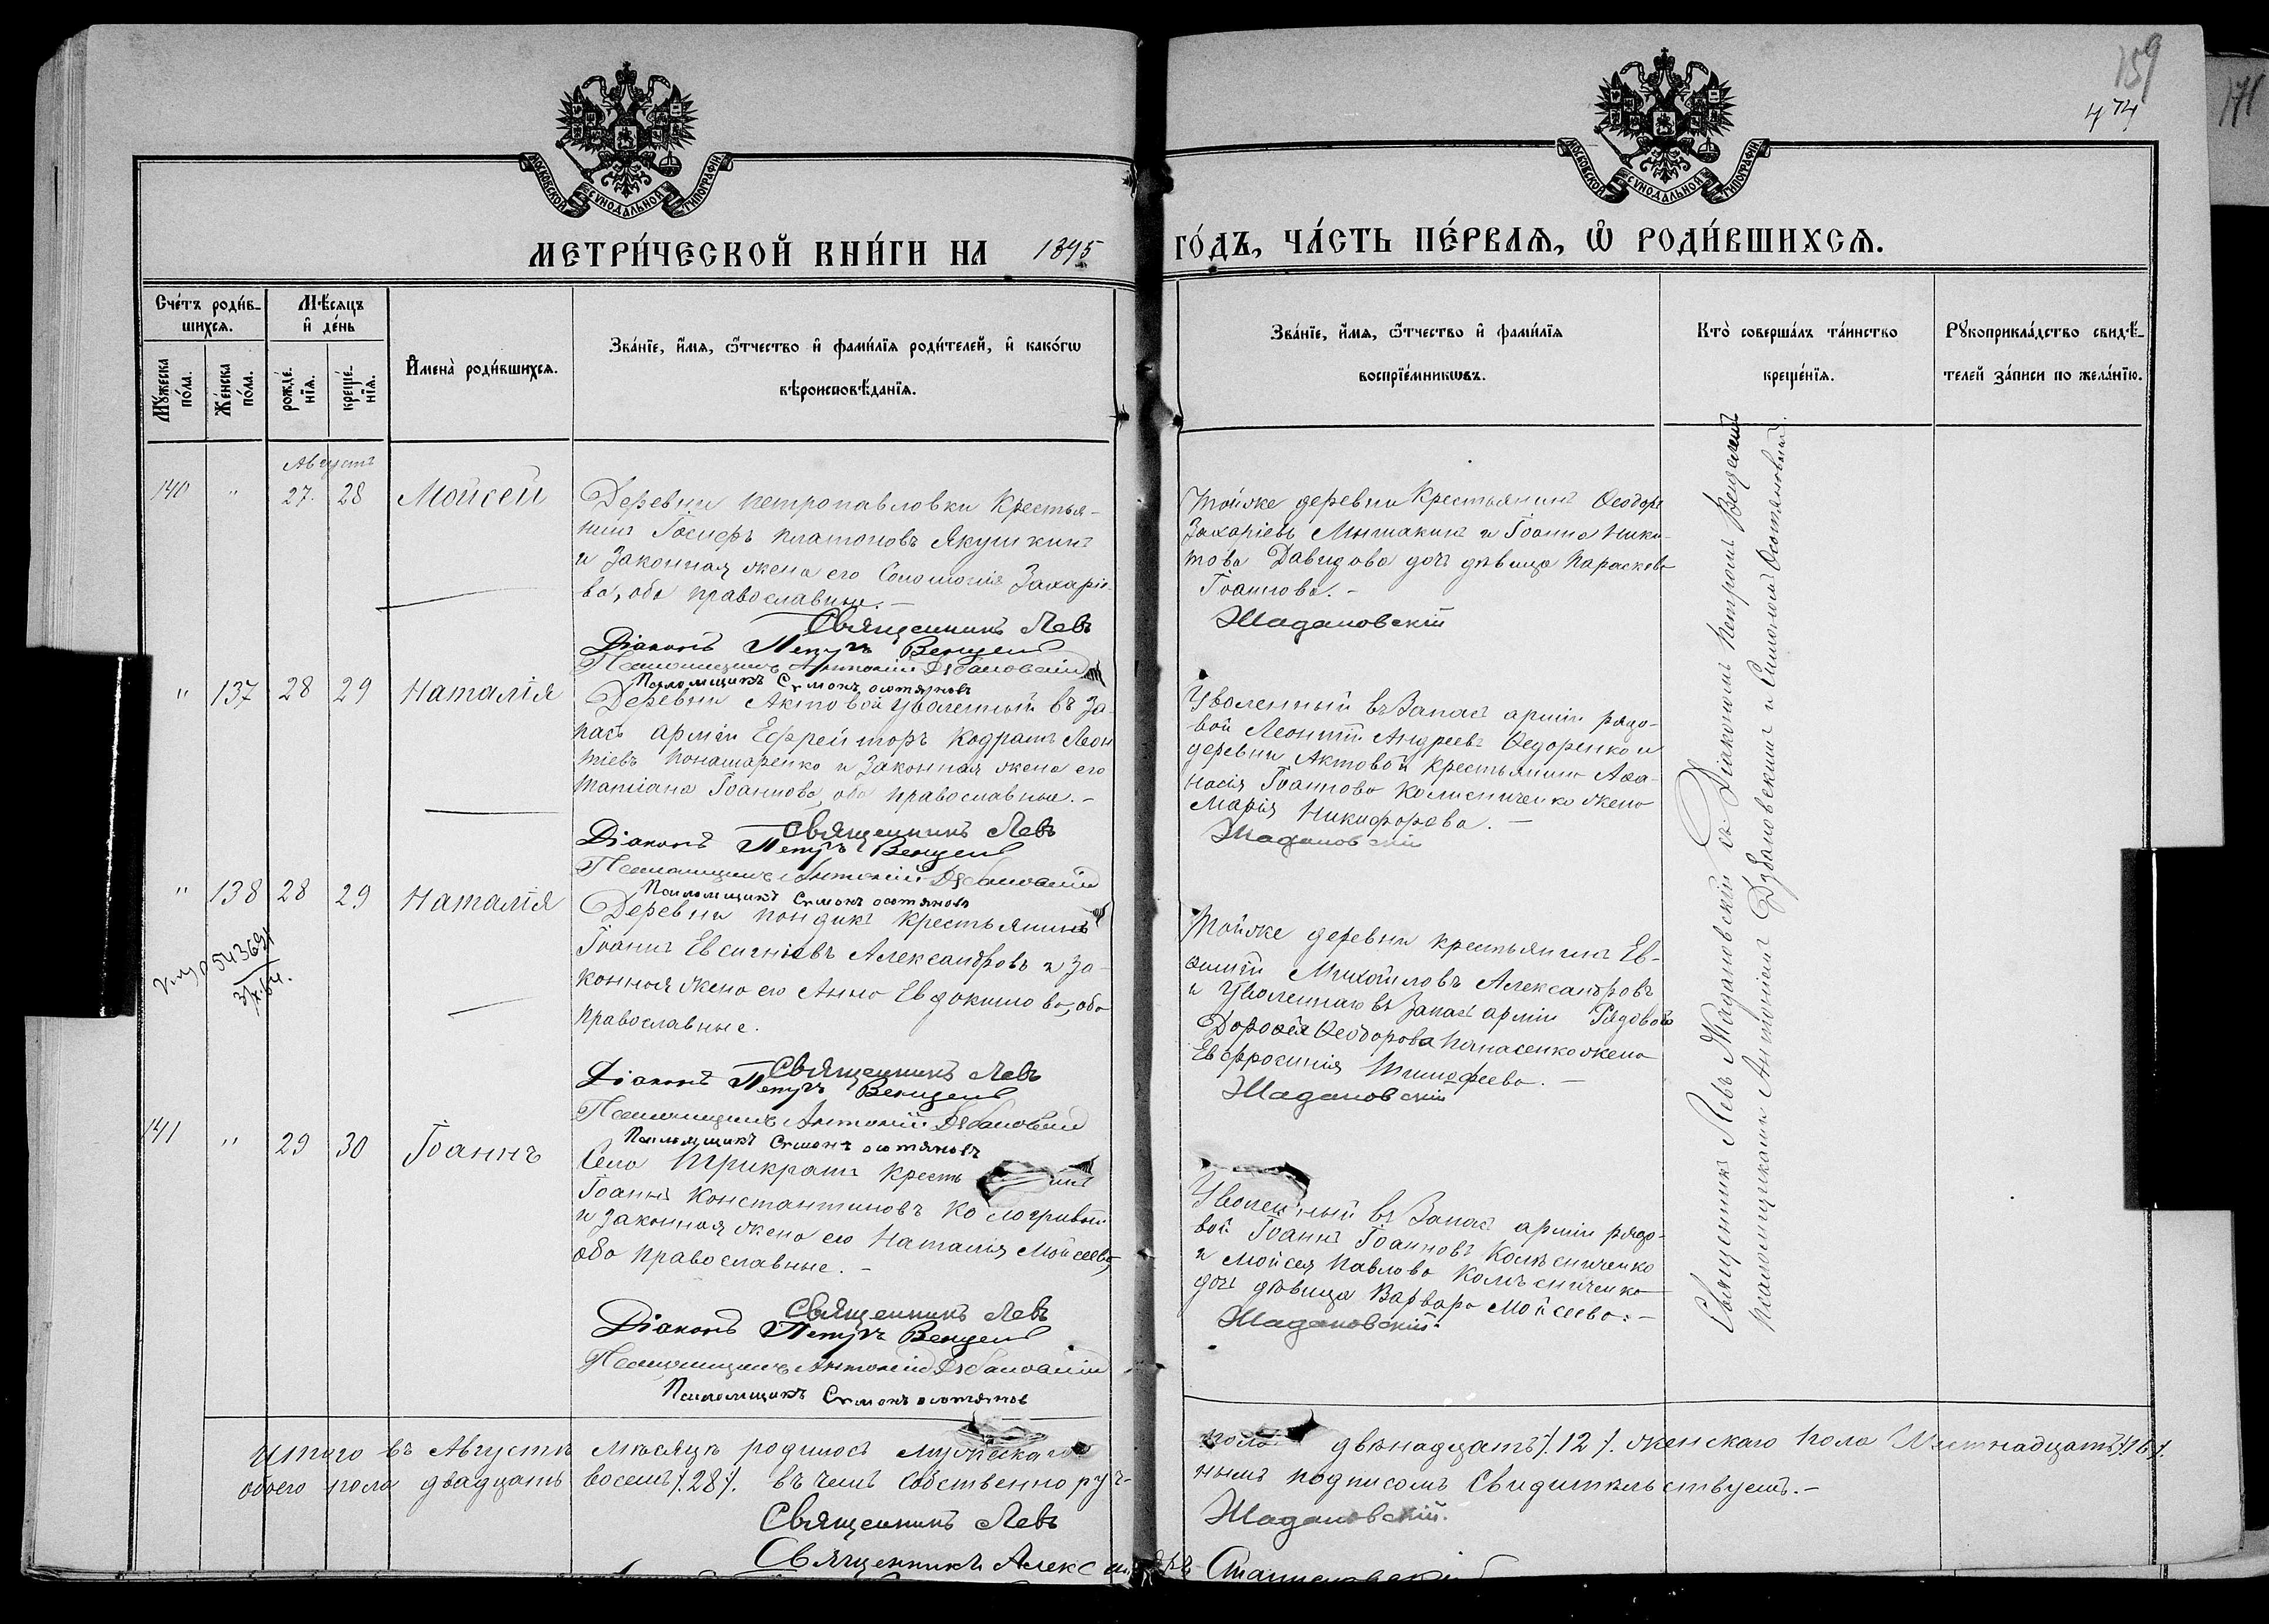 159
474
171
МОСКОВСКОЙ СѴНОДАЛЬНОЙ ТИПОГРАФІИ
МОСКОВСКОЙ СѴНОДАЛЬНОЙ ТИПОГРАФІИ
МЕТРИ́ЧЕСКОЙ КНИ́ГИ НА 1895 ГО́ДЪ, ЧА́СТЬ ПЕ́РВАЯ, Ѡ҆ РОДИ́ВШИХСЯ.
Сче́тъ роди́в-
шихся.
Мꙋ́жеска
по́ла.
Же́нска
по́ла.
Мѣ́сяцъ
и҆ де́нь
рожде́-
нїя.
креще́-
нїя.
И҆мена̀ роди́вшихся.
Зва́нїе, и҆́мя, ѻ҆́тчество и҆ фами́лїя роди́телей, и҆ како́гѡ
вѣроисповѣ́данїя.
Зва́нїе, и҆́мя, ѻ҆́тчество и҆ фами́лїя
воспрїе́мникѡвъ.
Кто̀ соверша́лъ та́инство
креще́нїя.
Рꙋкоприкла́дство свидѣ́-
телей за́писи по жела́нїю.
Августъ
140 " 27. 28 Моисей
Деревни Петропавловки Крестья-
нинъ Іосифъ Платоновъ Якушкинъ
и законная жена его Соломонія Захаріе-
ва, оба православные.-
Священникъ Левъ
Діаконъ Петръ Венцель
Псаломщикъ Антоній Дубановскій
Псаломщикъ Симонъ
Тойже деревни Крестьянинъ Ѳеодоръ
Захаріевъ Мышакинъ и Іоанна Ники-
това Давидова дочь дѣвица Параскева
Іоаннова.-
Жадановскій
" 137 28 29 Наталія
Деревни Актовой уволенный въ за-
пасъ арміи Ефрейторъ Кодратъ Леон
тіевъ Понамаренко и законная жена его
Татіана Іоаннова, оба православные.-
Священникъ Левъ
Діаконъ Петръ Венцель
Псаломщикъ Антоній Дубановскій
Псаломщикъ Симонъ
Уволенный въ Запасъ арміи рядо-
вой Леонтій Андреевъ Ѳедоренко и
деревни Актовой крестьянина Аѳа-
насія Іоаннова Колисниченко жена
Марія Никифорова.-
Жадановскій
" 138 28 29 Наталія
543691
Деревни Кондикъ крестьянинъ
Іоаннъ Евсигніевъ Александровъ и за-
конная жена его Анна Евдокимова, оба
православные.
Священникъ Левъ
Діаконъ Петръ Венцель
Псаломщикъ Антоній Дубановскій
Псаломщикъ Симонъ
Тойже деревни крестьянинъ Ев-
ѳимій Михайловъ Александровъ
и уволеннаго въ Запасъ арміи Рядового
Дороѳея Ѳеодорова Панасенко жена
Евфросинія Тимофеева.-
Жадановскій
141 " 29 30 Іоаннъ
Села Трикратъ Кресть нинъ
Іоаннъ Константиновъ Кологривый
и законная жена его Наталія Моисеева,
оба православные.-
Священникъ Левъ
Діаконъ Петръ Венцель
Псаломщикъ Антоній Дубановскій
Псаломщикъ Симонъ
Уволенный въ Запасъ арміи рядо-
вой Іоаннъ Іоанновъ Колѣсниченко
и Моисея Павлова Колѣсниченко
дочь дѣвица Варвара Моисеева.-
Жадановскій.
Священникъ Левъ Жадановскій съ Діакономъ Петромъ Венцелемъ
псаломщиками Антоніемъ Дубановскимъ и Симономъ
Итого въ Августѣ мѣсяцѣ родилось мужескаго пола двѣнадцать /.12/. женскаго пола Шестнадцать /.16/.
обоего пола двадцать восемь /.28/. въ чемъ собственноруч-нымъ подписомъ Свидительствуемъ.-
Священникъ Левъ Жадановскій.
Священникъ Александръ